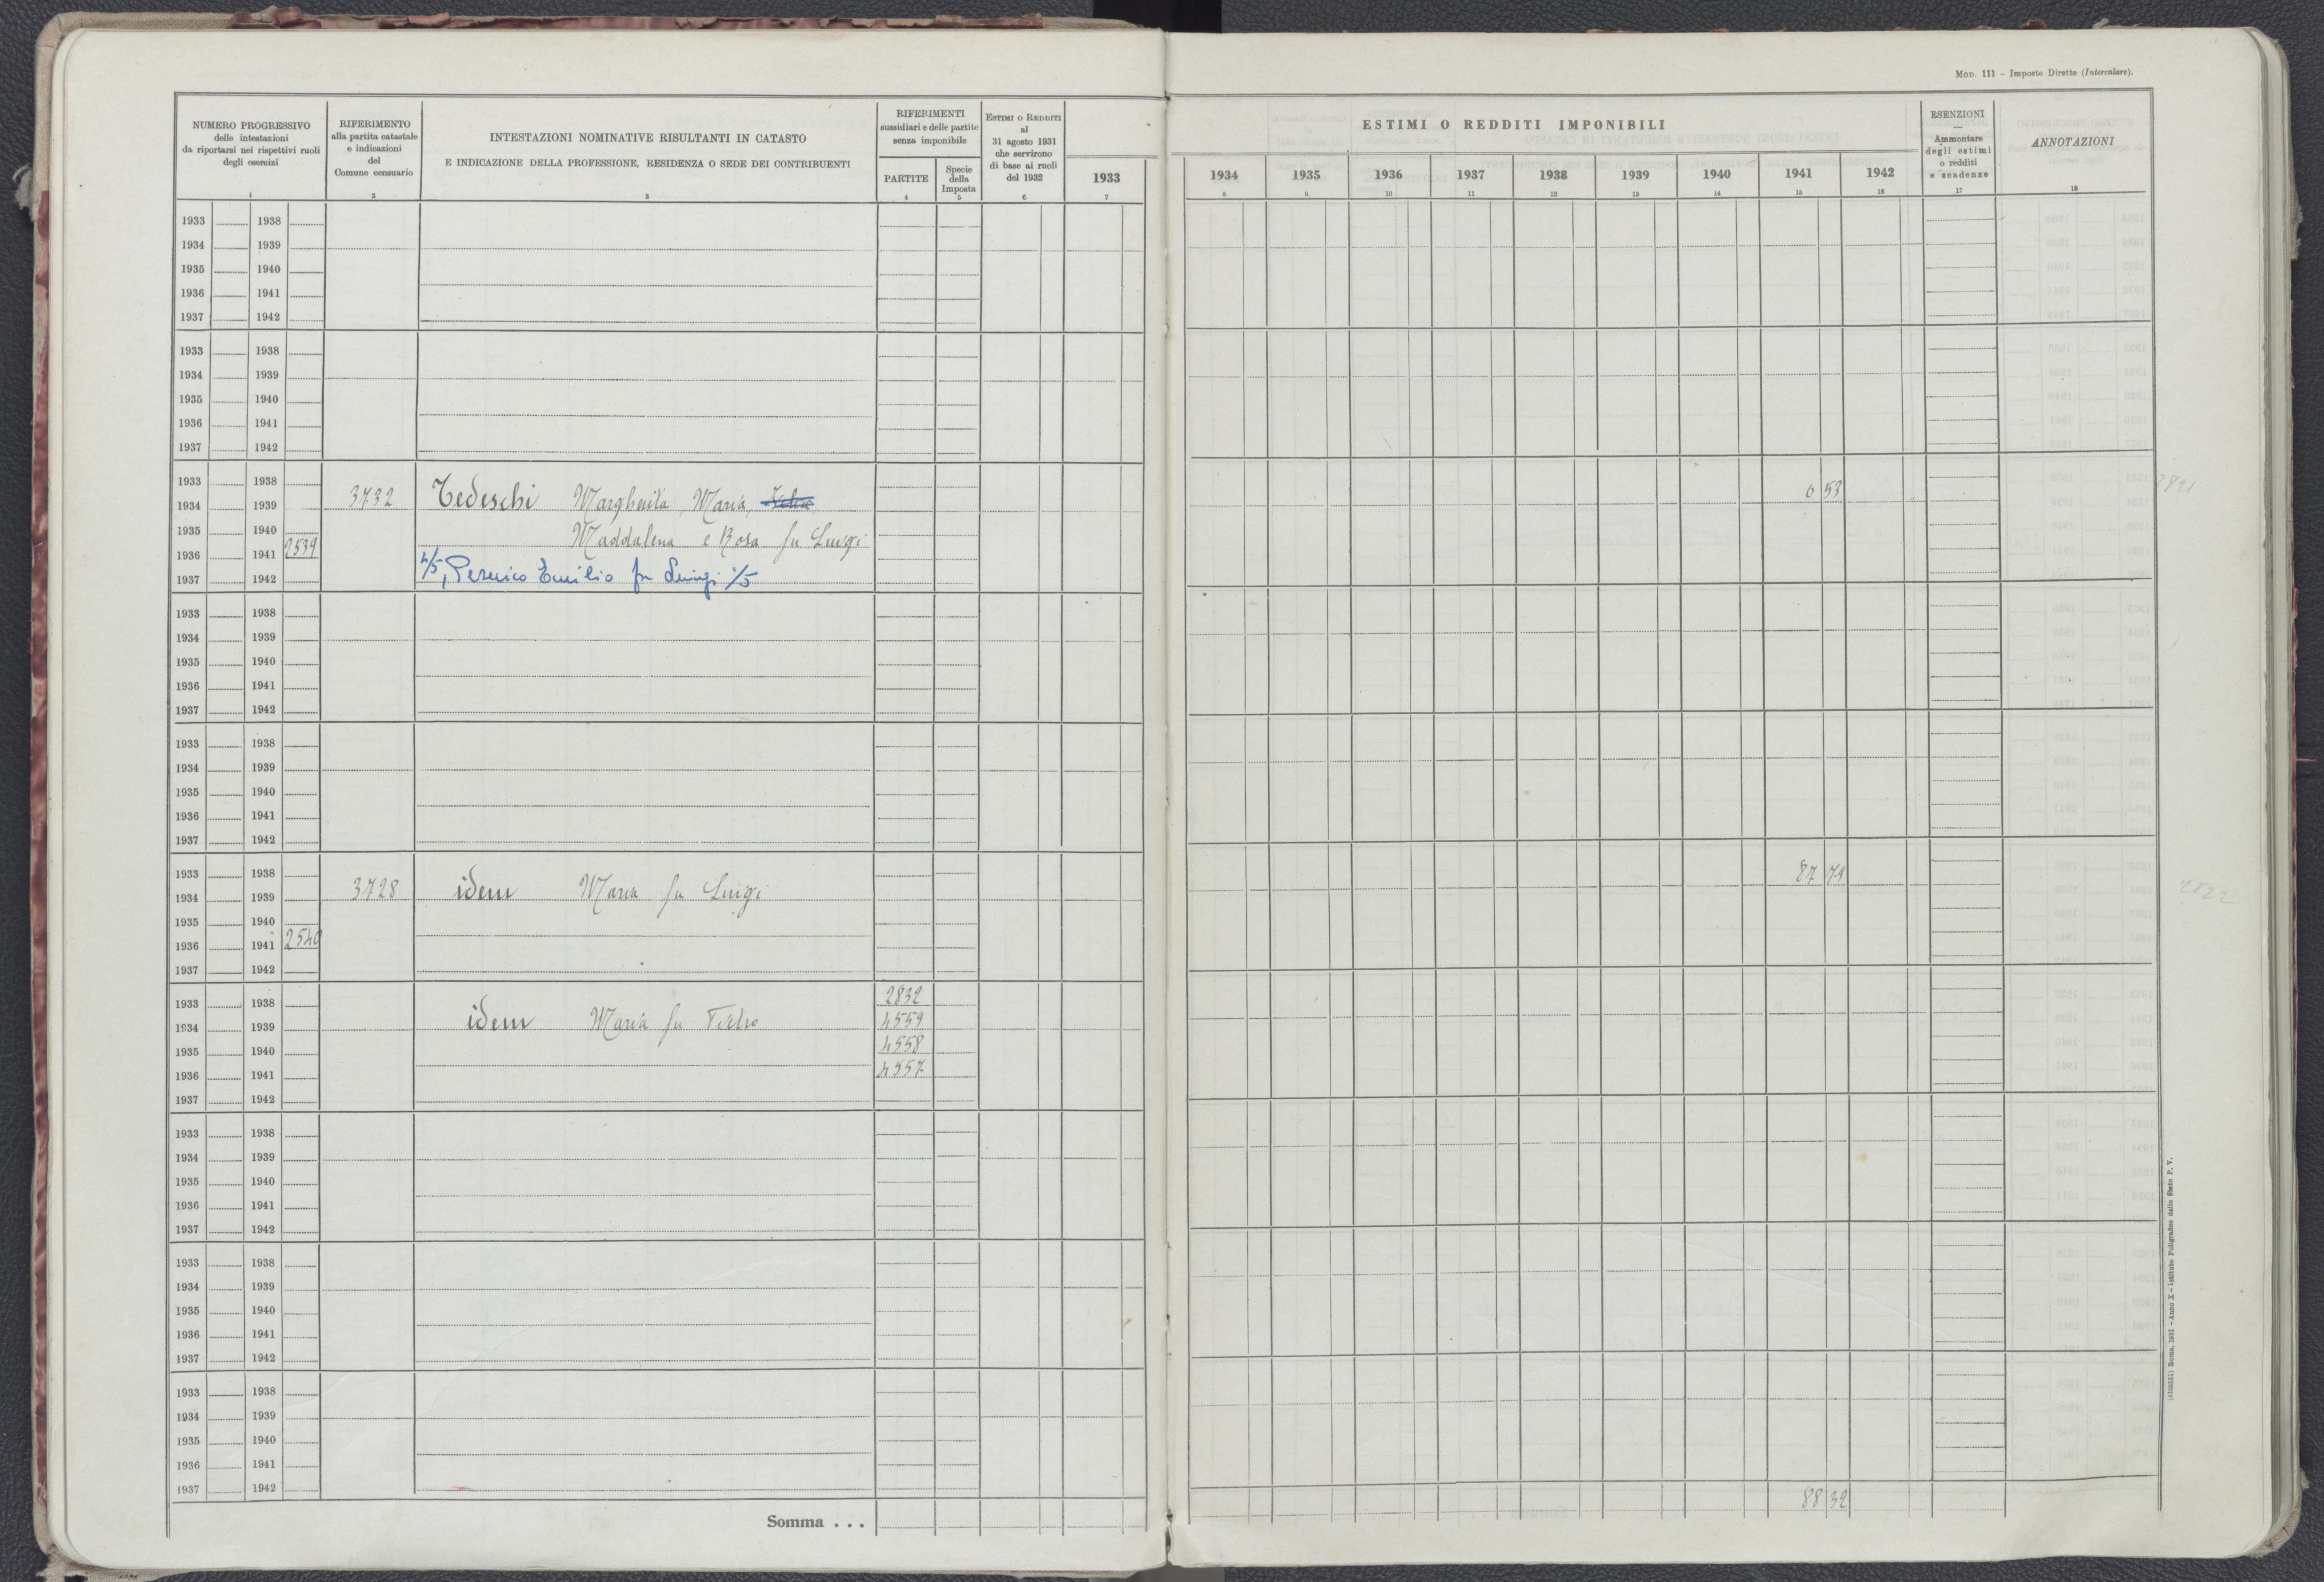 Mod. 111 - Imposte Dirette (Intercalare).
NUMERO PROGRESSIVO
delle intestazioni
da riportarsi nei rispettivi ruoli
degli esercizi
1
RIFERIMENTO
alla partita catastale
e indicazioni
del
Comune censuario
2
INTESTAZIONI NOMINATIVE RISULTANTI IN CATASTO
E INDICAZIONE DELLA PROFESSIONE, RESIDENZA O SEDE DEI CONTRIBUENTI
3
RIFERIMENTI
sussidiari e delle partite
senza imponibile
PARTITE
4
Specie
della
Imposta
5
Estimi o Redditi
al
31 agosto 1931
che servirono
di base ai ruoli
del 1932
6
1933
7
ESTIMI O REDDITI IMPONIBILI
1934 1935 1936 1937 1938 1939 1940 1941 1942
8 9 10 11 12 13 14 15 16
ESENZIONI
—
Ammontare
degli estimi
o redditi
e scadenze
17
ANNOTAZIONI
18
1933 1938
1934 1939
1935 1940
1936 1941
1937 1942
1933 1938
1934 1939
1935 1940
1936 1941
1937 1942
1933 1938
1934 1939 3732 Tedeschi Margherita, Maria, 0 53 2821
1935 1940 Maddalena e Rosa fu Luigi
1936 1941 2539
1937 1942 4/5, Persico Emilio fu Luigi 1/5
1933 1938
1934 1939
1935 1940
1936 1941
1937 1942
1933 1938
1934 1939
1935 1940
1936 1941
1937 1942
1933 1938
1934 1939 3728 idem Maria fu Luigi 87 79 2822
1935 1940
1936 1941 2540
1937 1942
1933 1938 2832
1934 1939 idem Maria fu Pietro 4559
1935 1940 4558
1936 1941 4557
1937 1942
1933 1938
1934 1939
1935 1940
1936 1941
1937 1942
1933 1938
1934 1939
1935 1940
1936 1941
1937 1942
1933 1938
1934 1939
1935 1940
1936 1941
1937 1942
Somma . . . 88 32
Roma, 1931 - Anno X - Istituto Poligrafico dello Stato P. V.